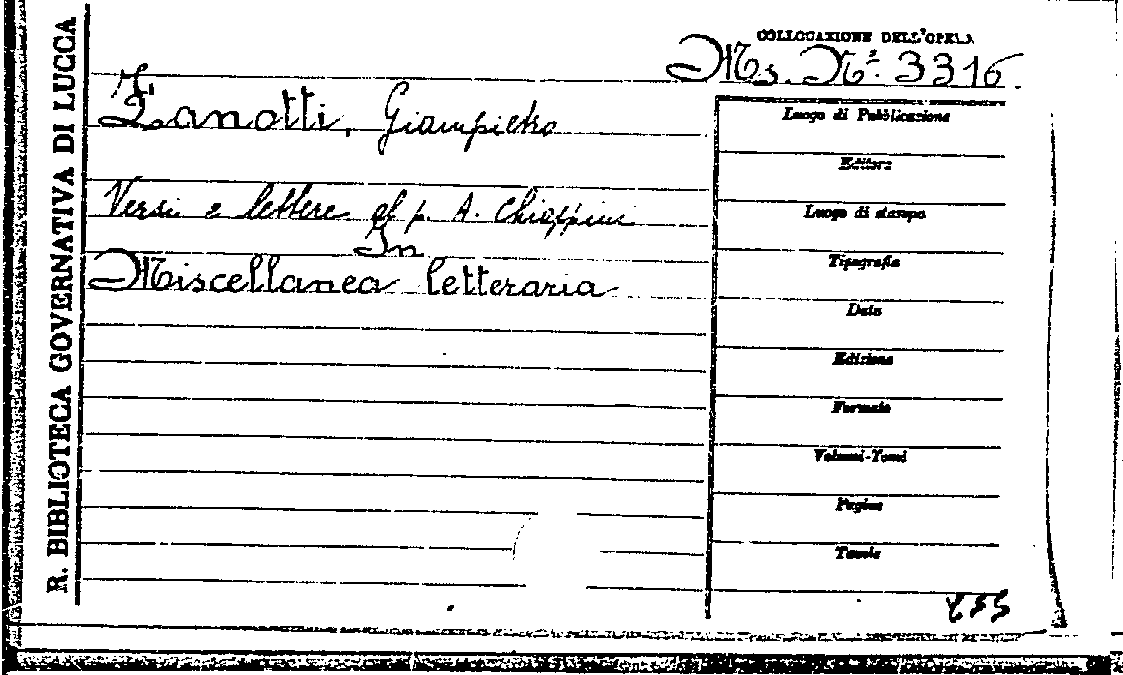 R. BIBLIOTECA GOVERNATIVA DI LUCCA
COLLOCAZIONE DELL'OPERA
Ms. N.º 3316
Zanotti, Giampietro
Versi e lettere al p. A. Chiappini
In
Miscellanea letteraria
Luogo di Pubblicazione
Editore
Luogo di stampa
Tipografia
Data
Edizione
Formato
Volumi-Tomi
Pagine
Tavole